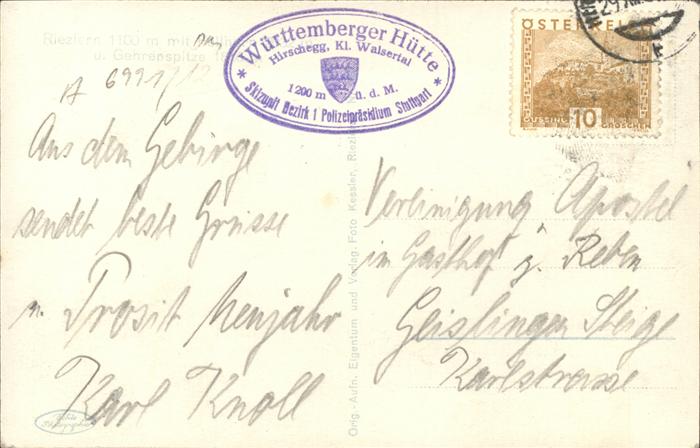 Riezlern 1100 m mit
u. Gehrenspitze
Württemberger Hütte
Hirschegg, Kl. Walsertal
1200 m ü. d. M.
Skizunft Bezirk 1 Polizeipräsidium Stuttgart
ÖSTERREICH
GÜSSING 10 GROSCHEN
29. XII.
A 6991/12
Aus dem Gebirge
sendet beste Grüsse
u. Prosit Neujahr
Karl Knoll
Orig.-Aufn. Eigentum und Verlag. Foto Kessler, Riezlern
Vereinigung Apostel
im Gasthof z. Reben
Geislingen Steige
Karlstrasse